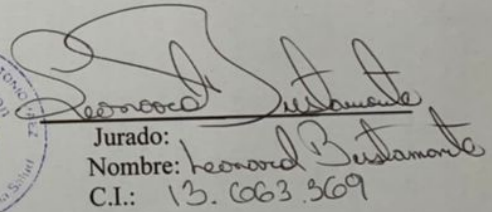 Leonard Bustamante
Jurado:
Nombre: Leonard Bustamante
C.I.: 13.663.369